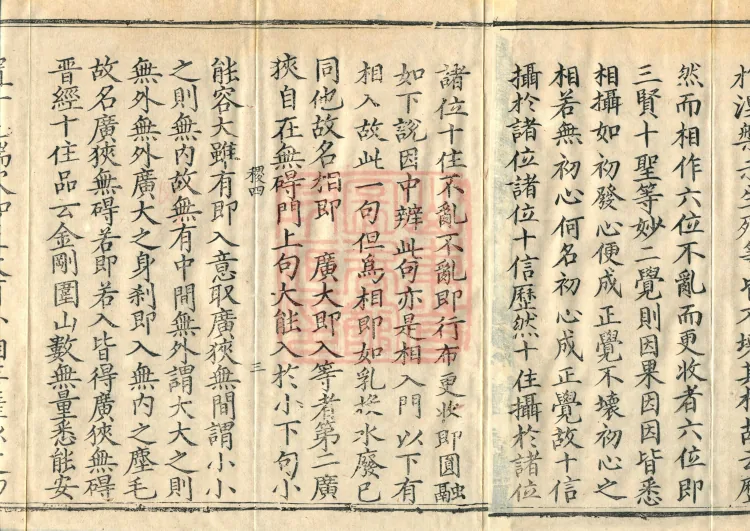 然而相作六位不亂而更收者六位即
三賢十聖等妙二覺則因果因因皆悉
相攝如初發心便成正覺不壞初心之
相若無初心何名初心成正覺故十信
攝於諸位諸位十信歷然十住攝於諸位
諸位十住不亂不亂即行布更收即圓融
如下說因中辨此句亦是相入門以下有
相入故此一句但爲相即如乳投水廢已
同他故名相即　廣大即入等者第二廣
狹自在無碍門上句大能入於小下句小
稷四　三
能容大雖有即入意取廣狹無間謂小小
之則無內故無有中間無外謂大大之則
無外無外廣大之身刹即入無內之塵毛
故名廣狹無碍若即若入皆得廣狹無碍
晉經十住品云金剛圍山數無量悉能安